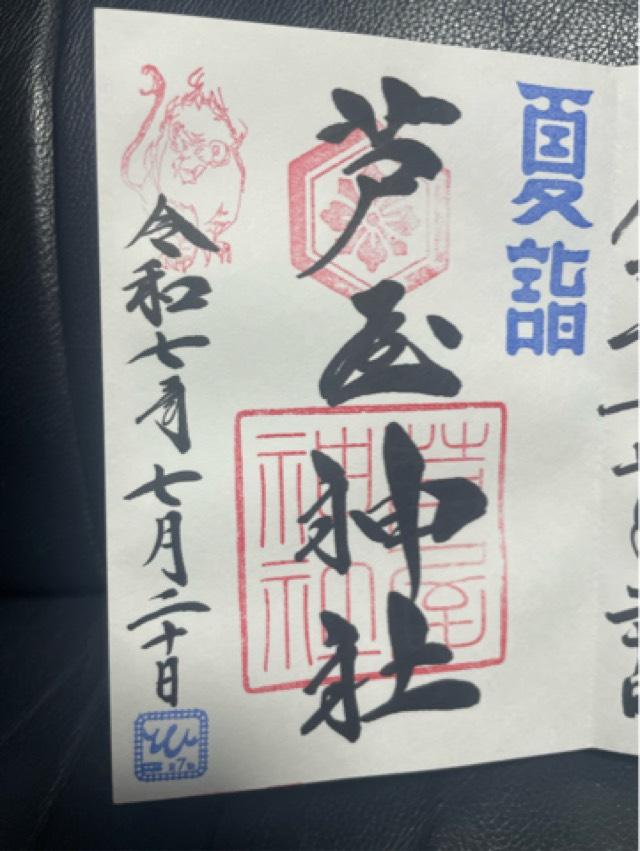 夏詣
芦屋神社
芦屋
神社
令和七年七月二十日